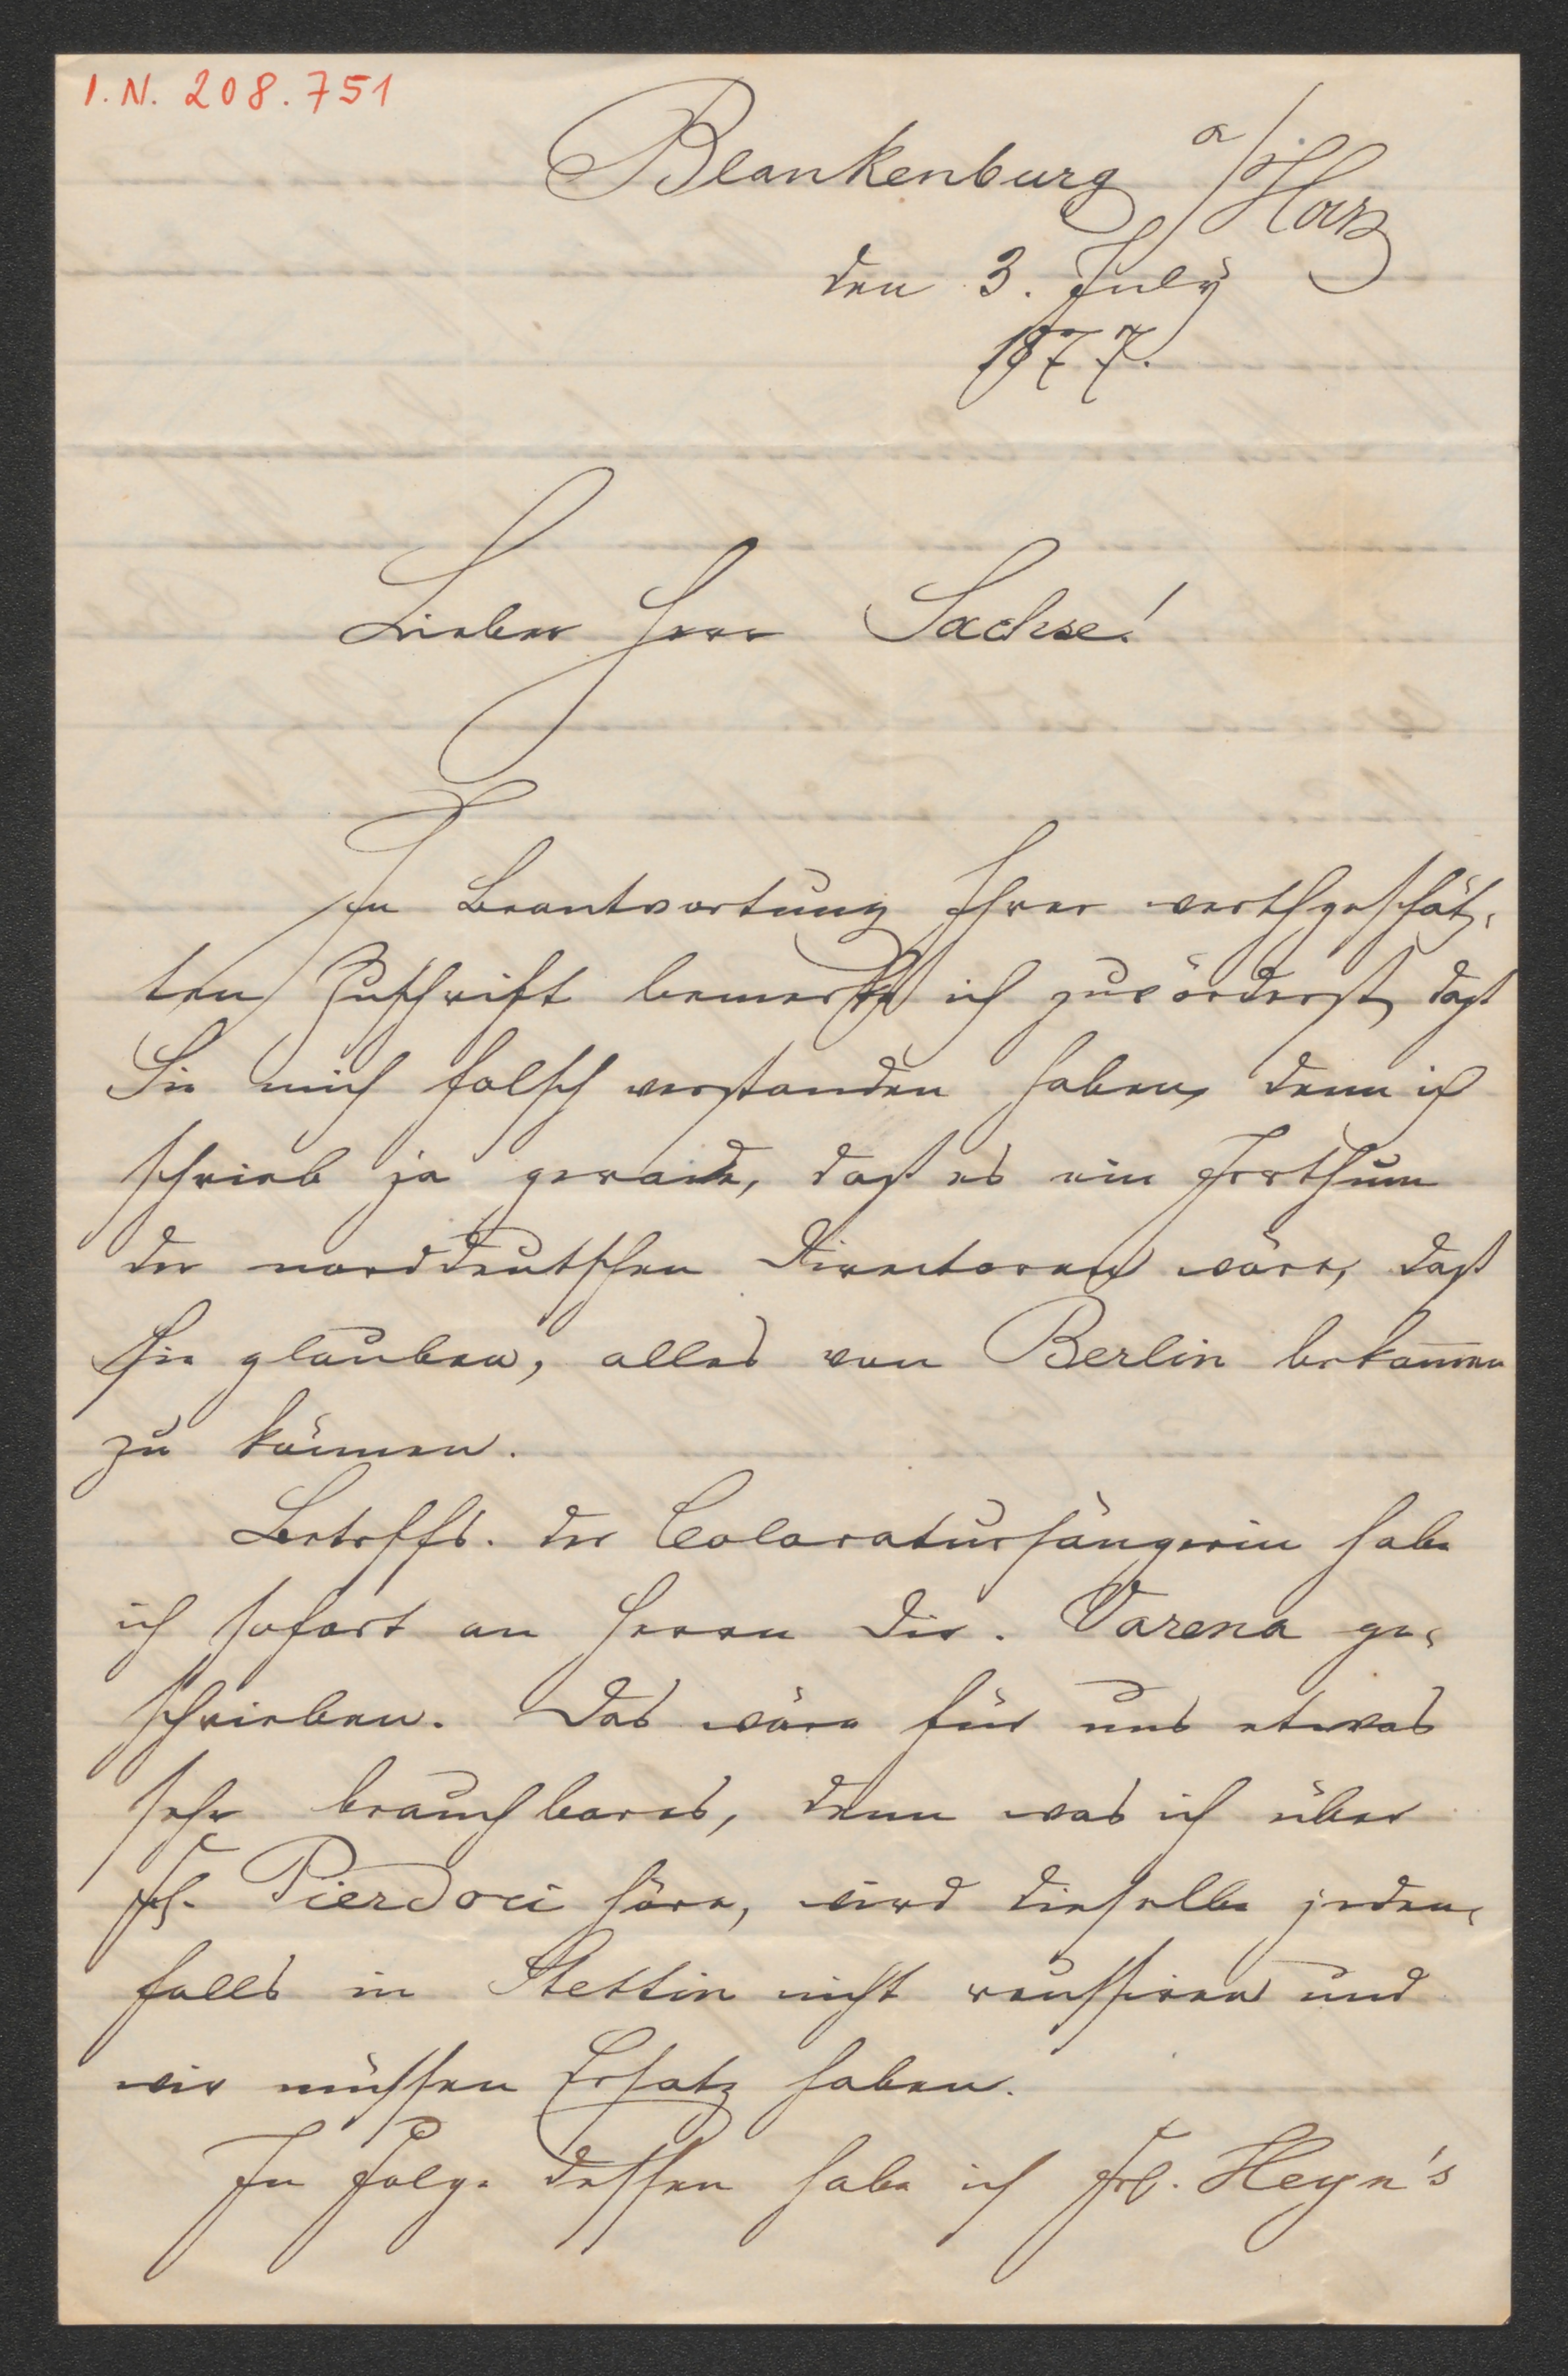 I.N. 208.751
Blankenburg a/Harz
den 3. July
1877.
Lieber Herr Sachse!
In Beantwortung Ihrer werthgeschätz-
ten Zuschrift bemerke ich zuvörderst, daß
Sie mich falsch verstanden haben, denn ich
schrieb ja gerade, daß es ein Irrthum
der norddeutschen Directoren wäre, daß
Sie glauben, alles von Berlin bekom̄en
zu können.
Betreffs. der Coloratursängerin habe
ich sofort an Herrn Dir. Varena ge-
schrieben. Das wäre für uns etwas
sehr brauchbares, denn was ich über
Frl. Pierdoci höre, wird dieselbe jeden-
falls in Stettin nicht reussiren und
wir müssen Ersatz haben.
In Folge dessen habe ich Frl. Heyn's